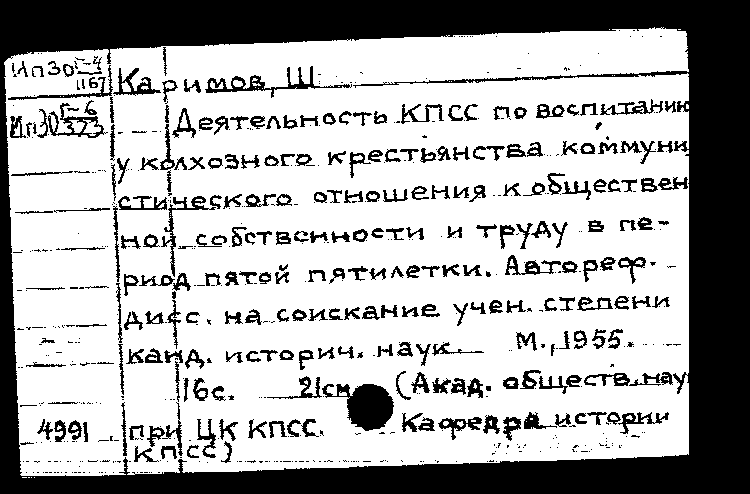 Ип30 Г-4/1167
Каримов, Ш
Ип30 Г-6/323
Деятельность КПСС по воспитанию
у колхозного крестьянства коммуни
стического отношения к обществен
ной собственности и труду в пе-
риод пятой пятилетки. Автореф.
дисс. на соискание учен. степени
канд. историч. наук. М., 1955.
16с. 21см (Акад. обществ. нау
4991 при ЦК КПСС. Кафедра истории
КПСС)